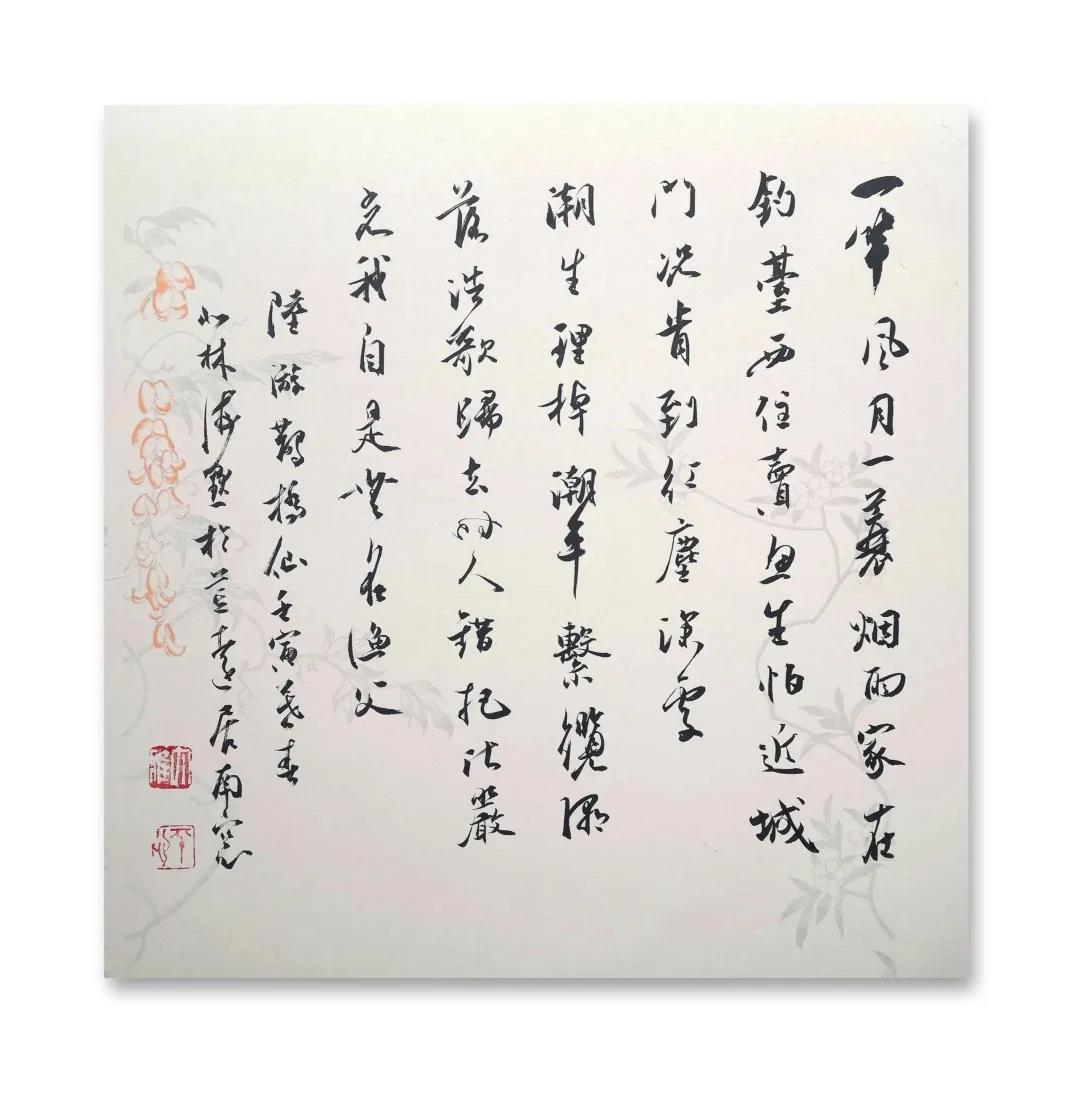 一竿風月一蓑烟雨家在
釣臺西住賣魚生怕近城
門况肯到紅塵深處
潮生理棹潮平繫纜潮
落浩歌歸去時人錯把比嚴
光我自是無名漁父
陸游鵲橋仙壬寅暮春
林海於遠居南窓